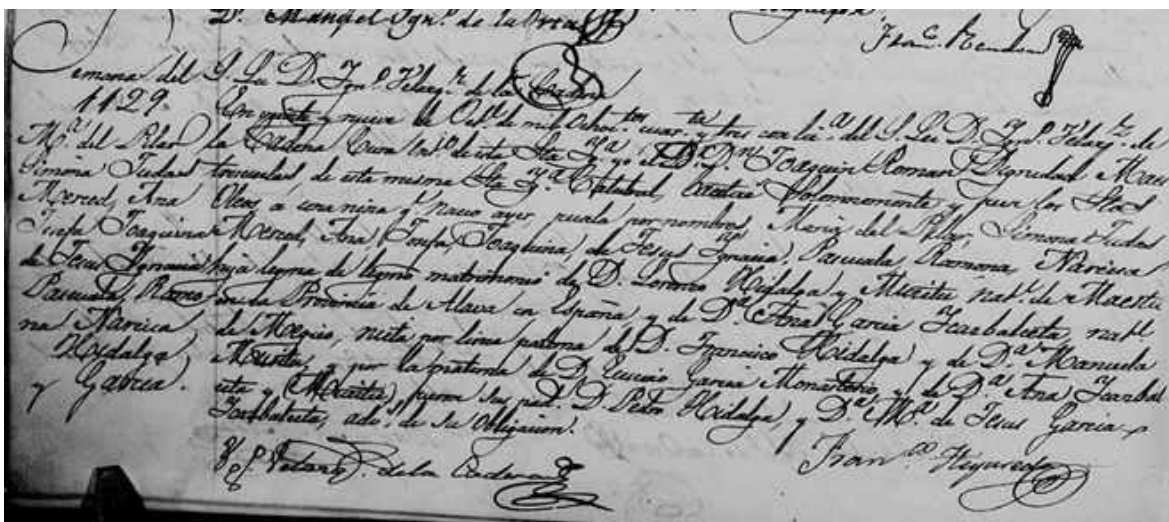 Dr. Manuel Ygno. de la Orea
Franco. Rendon
Semana del S. Lic. D. Ygno. Velazqz. de la Cadena
1129.
Ma. del Pilar
Simona Judas
Merced, Ana
Josefa Joaquina
de Jesus Ygnacia
Pascuala Ramo
na Narcisa
Hidalga
y Garcia.
En veinte y nueve de Octe. de mil ochoctos. cuarta. y tres con lica. del S. Lic. D. Ygno. Velazqz. de
la Cadena Cura de esta Sta. Yga. yo el Dr. Dn. Joaquin Roman Dignidad Maes
trescuelas de esta misma Sta. Yga. Catedral, bautizé solemnemente y puse los Stos.
Oleos á una niña q. nació ayer, pusela por nombres Maria del Pilar, Simona Judas
Merced, Ana Josefa, Joaquina, de Jesus Ygnacia, Pascuala Ramona, Narcisa
hija legma. de legmo. matrimonio de D. Lorenzo Hidalga y Musitu natl. de Maestu
en la Provincia de Alava en España y de Da. Ana Garcia Icazbalceta, natl.
de Megico, nieta por linea paterna de D. Francisco Hidalga y de Da. Manuela
Musitu, y por la materna de D. Eusevio Garcia Monasterio, y de Da. Ana Icazbal
ceta y (Musitu) fueron sus pads. D. Pedro Hidalga, y Da. Ma. de Jesus Garcia
Icazbalceta, ados. de su Obligacion.
Velazqz. de la Cadena
Franco. Higuereda